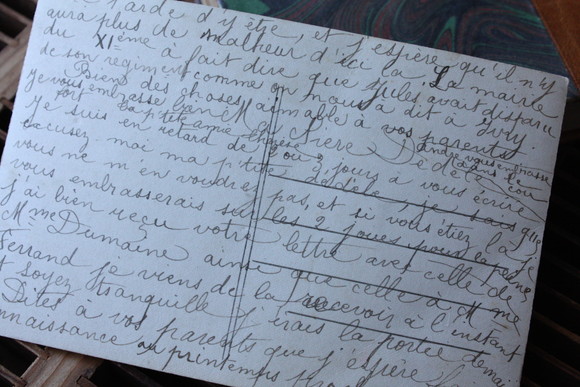 tarde d'y être, et j'espère qu'il n'y
aura plus de malheur d'ici la. La mairie
du XIème à fait dire que Jules avait disparu
de son régiment comme on nous à dit à Ivry
Bien des choses aimable à vos parents
Je vous embrasse
Je suis en retard de 2 ou 3 jours à vous écrire
excusez moi ma p'tite Adèle, je sais que
vous ne m'en voudrez pas, et si vous étiez là je
vous embrasserais sur les 2 joues pour la peine
j'ai bien reçu votre lettre avec celle de
Mme Dumaine ainsi que celle à Mme
Ferrand je viens de la recevoir à l'instant
et soyez tranquille j'irais la porter demain
Dites à vos parents que j'espère
connaissance au printemps